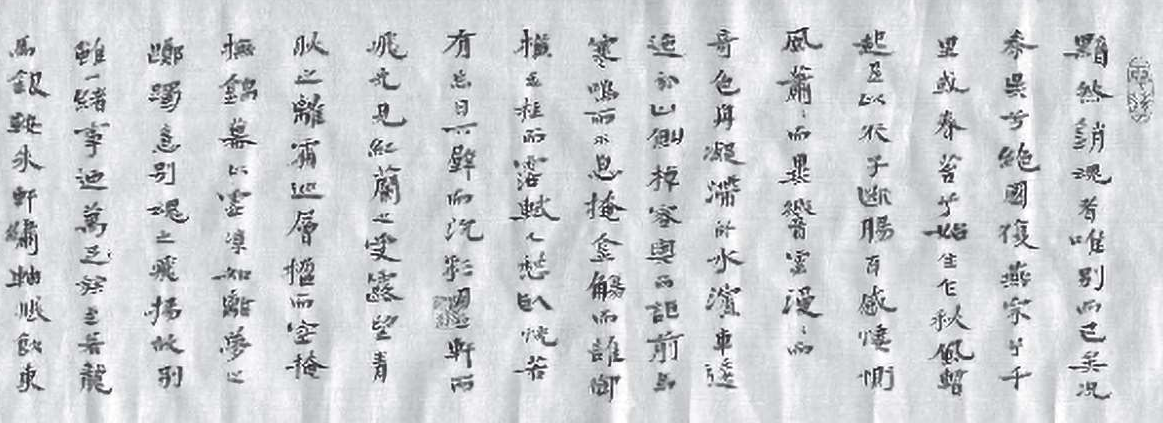 黯然銷魂者唯別而已矣況
秦吳兮絕國復燕宋兮千
里或春苔兮始生乍秋風蹔
起是以行子斷腸百感悽惻
風蕭〻而異響雲漫〻而
奇色舟凝滯於水濱車逶
迤於山側棹容與而詎前馬
寒鳴而不息掩金觴而誰御
橫玉柱而霑軾人愁臥怳若
有亡日下壁而沉彩軒而
飛光見紅蘭之受露望青
楸之離霜巡層楹而空掩
撫錦幕以虛凉知離夢之
躑躅意別魂之飛揚故別
雖一緒事迺萬族至若龍
馬銀鞍朱軒繡軸帳飲東